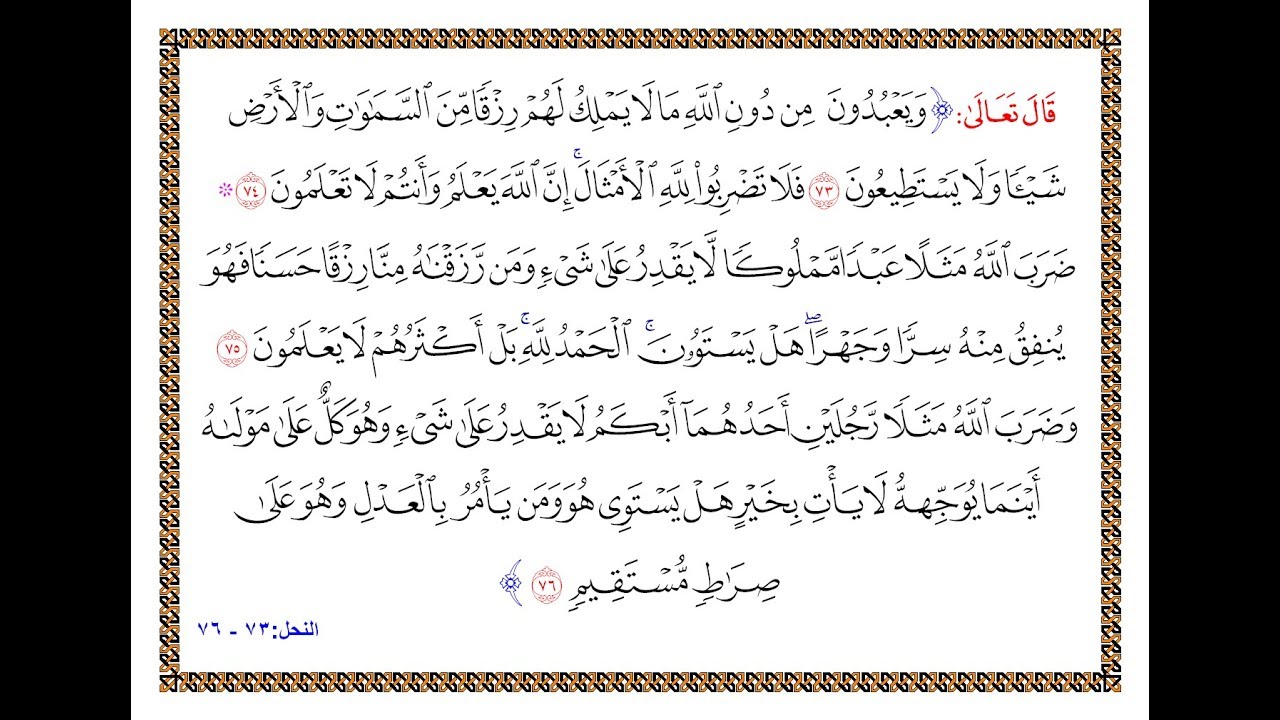 قَالَ تَعَالَىٰ: ﴿ وَيَعۡبُدُونَ مِن دُونِ ٱللَّهِ مَا لَا يَمۡلِكُ لَهُمۡ رِزۡقٗا مِّنَ ٱلسَّمَٰوَٰتِ وَٱلۡأَرۡضِ
شَيۡـٔٗا وَلَا يَسۡتَطِيعُونَ ٧٣ فَلَا تَضۡرِبُواْ لِلَّهِ ٱلۡأَمۡثَالَۚ إِنَّ ٱللَّهَ يَعۡلَمُ وَأَنتُمۡ لَا تَعۡلَمُونَ ٧٤ *
ضَرَبَ ٱللَّهُ مَثَلًا عَبۡدٗا مَّمۡلُوكٗا لَّا يَقۡدِرُ عَلَىٰ شَيۡءٖ وَمَن رَّزَقۡنَٰهُ مِنَّا رِزۡقًا حَسَنٗا فَهُوَ
يُنفِقُ مِنۡهُ سِرّٗا وَجَهۡرًاۖ هَلۡ يَسۡتَوُۥنَۚ ٱلۡحَمۡدُ لِلَّهِۚ بَلۡ أَكۡثَرُهُمۡ لَا يَعۡلَمُونَ ٧٥
وَضَرَبَ ٱللَّهُ مَثَلٗا رَّجُلَيۡنِ أَحَدُهُمَآ أَبۡكَمُ لَا يَقۡدِرُ عَلَىٰ شَيۡءٖ وَهُوَ كَلٌّ عَلَىٰ مَوۡلَىٰهُ
أَيۡنَمَا يُوَجِّههُّ لَا يَأۡتِ بِخَيۡرٍ هَلۡ يَسۡتَوِي هُوَ وَمَن يَأۡمُرُ بِٱلۡعَدۡلِ وَهُوَ عَلَىٰ
صِرَٰطٖ مُّسۡتَقِيمٖ ٧٦ ﴾
النحل: ٧٣ - ٧٦